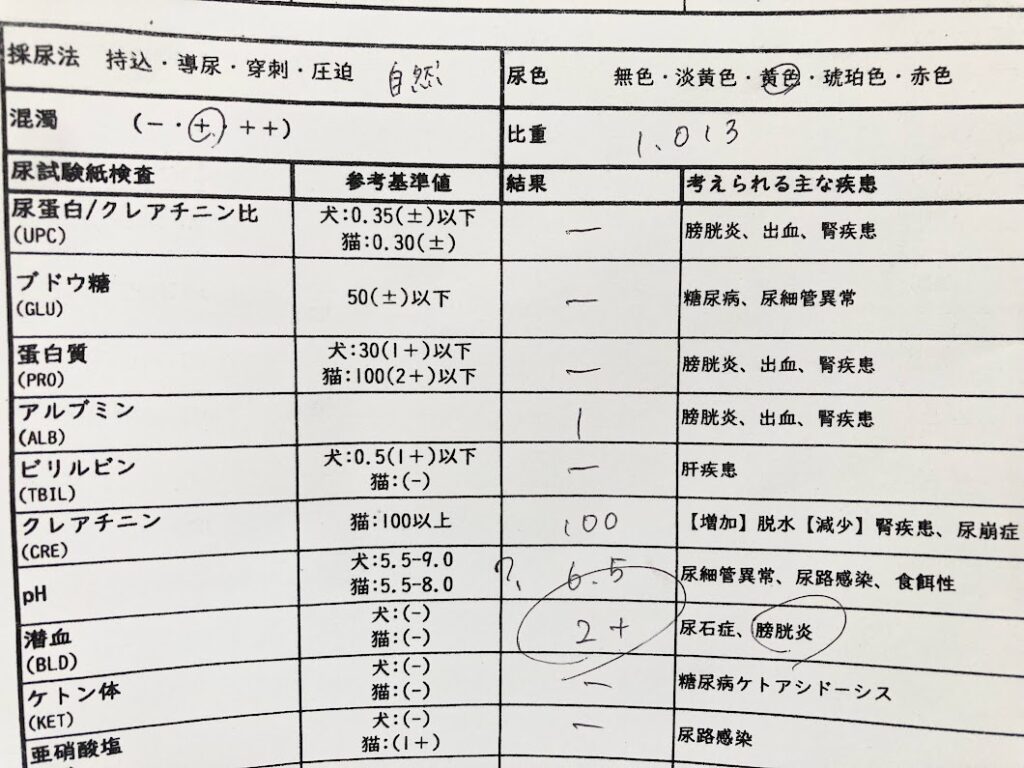 採尿法 持込・導尿・穿刺・圧迫 自然
尿色 無色・淡黄色・黄色・琥珀色・赤色
混濁 (-・+・++)
比重 1.013
尿試験紙検査 参考基準値 結果 考えられる主な疾患
尿蛋白/クレアチニン比
(UPC)
犬:0.35(±)以下
猫:0.30(±)
-
膀胱炎、出血、腎疾患
ブドウ糖
(GLU)
50(±)以下
-
糖尿病、尿細管異常
蛋白質
(PRO)
犬:30(1+)以下
猫:100(2+)以下
-
膀胱炎、出血、腎疾患
アルブミン
(ALB)
膀胱炎、出血、腎疾患
ビリルビン
(TBIL)
犬:0.5(1+)以下
猫:(-)
-
肝疾患
クレアチニン
(CRE)
猫:100以上
100
【増加】脱水【減少】腎疾患、尿崩症
pH
犬:5.5-9.0
猫:5.5-8.0
6.5
尿細管異常、尿路感染、食餌性
潜血
(BLD)
犬:(-)
猫:(-)
2+
尿石症、膀胱炎
ケトン体
(KET)
犬:(-)
猫:(-)
-
糖尿病ケトアシドーシス
亜硝酸塩
犬:(-)
猫:(1+)
-
尿路感染